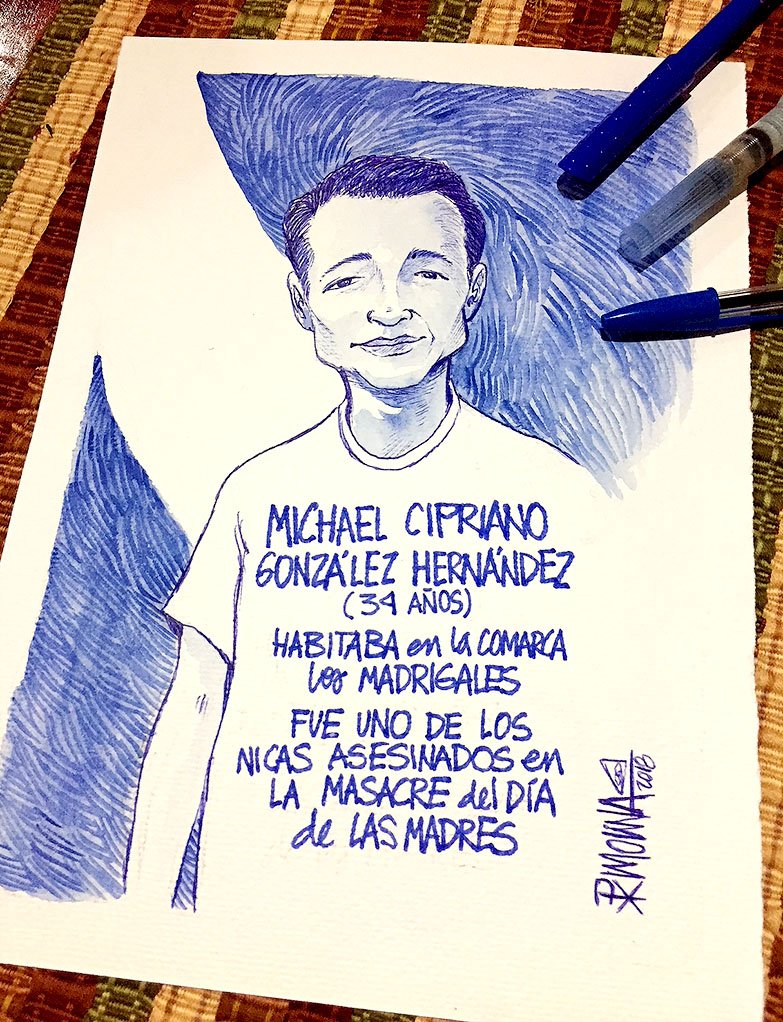 MICHAEL CIPRIANO
GONZÁLEZ HERNÁNDEZ
(34 AÑOS)
HABITABA en la COMARCA
los MADRIGALES
FUE UNO DE LOS
NICAS ASESINADOS en
LA MASACRE del DÍA
de LAS MADRES
PXMOLINA
2018